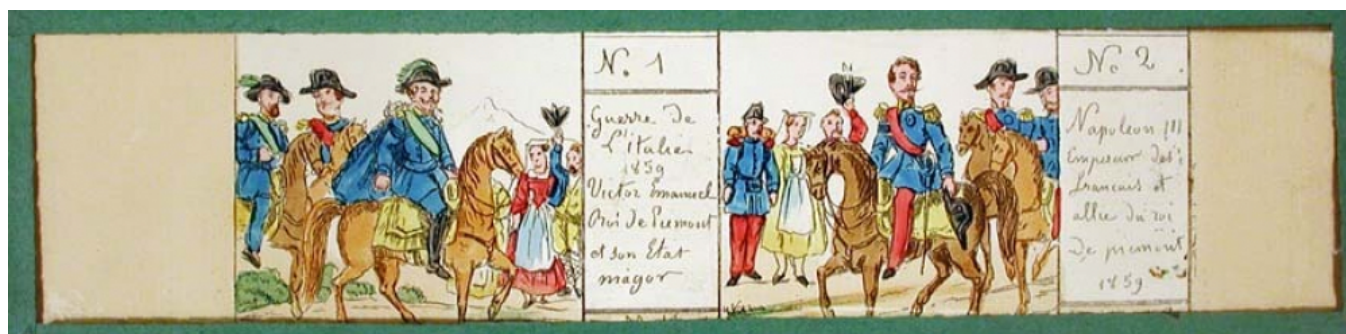 N. 1
Guerre de
L'italie
1859
Victor Emanuel
Roi de Piemont
et son Etat
magor
No 2.
Napoleon III
Empereur des
francais et
allie du roi
De piemont
1859